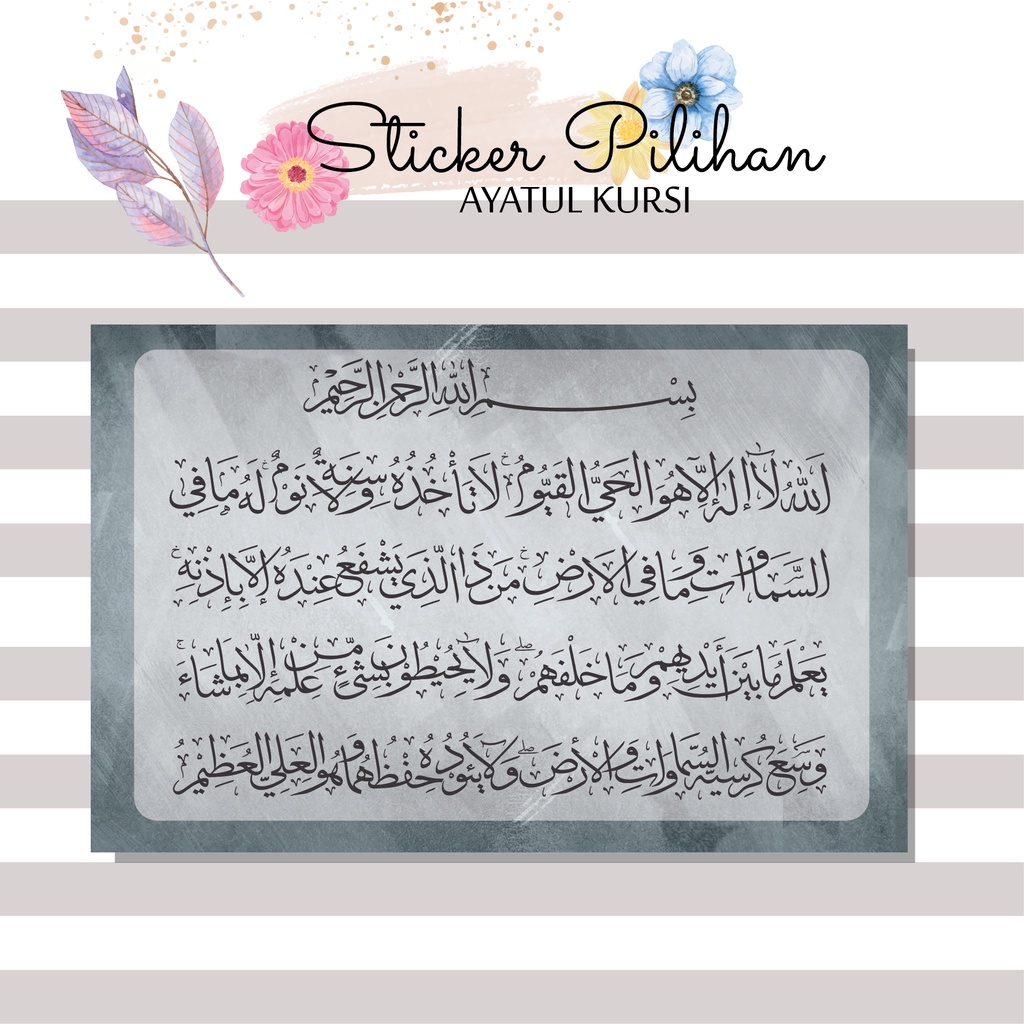 Sticker Pilihan
AYATUL KURSI
بِسْمِ اللهِ الرَّحْمٰنِ الرَّحِيْمِ
اَللهُ لَآ اِلٰهَ اِلَّا هُوَ الْحَيُّ الْقَيُّوْمُ ۚ لَا تَأْخُذُهُ سِنَةٌ وَلَا نَوْمٌ ۚ لَهُ مَا فِي
السَّمَاوَاتِ وَمَا فِي الْاَرْضِ ۚ مَنْ ذَا الَّذِيْ يَشْفَعُ عِنْدَهُ اِلَّا بِاِذْنِهِ ۚ
يَعْلَمُ مَا بَيْنَ أَيْدِيْهِمْ وَمَا خَلْفَهُمْ ۖ وَلَا يُحِيْطُوْنَ بِشَيْءٍ مِّنْ عِلْمِهِ اِلَّا بِمَا شَاءَ ۚ
وَسِعَ كُرْسِيُّهُ السَّمَاوَاتِ وَالْأَرْضَ ۖ وَلَا يَئُوْدُهُ حِفْظُهُمَا وَهُوَ الْعَلِيُّ الْعَظِيْمُ